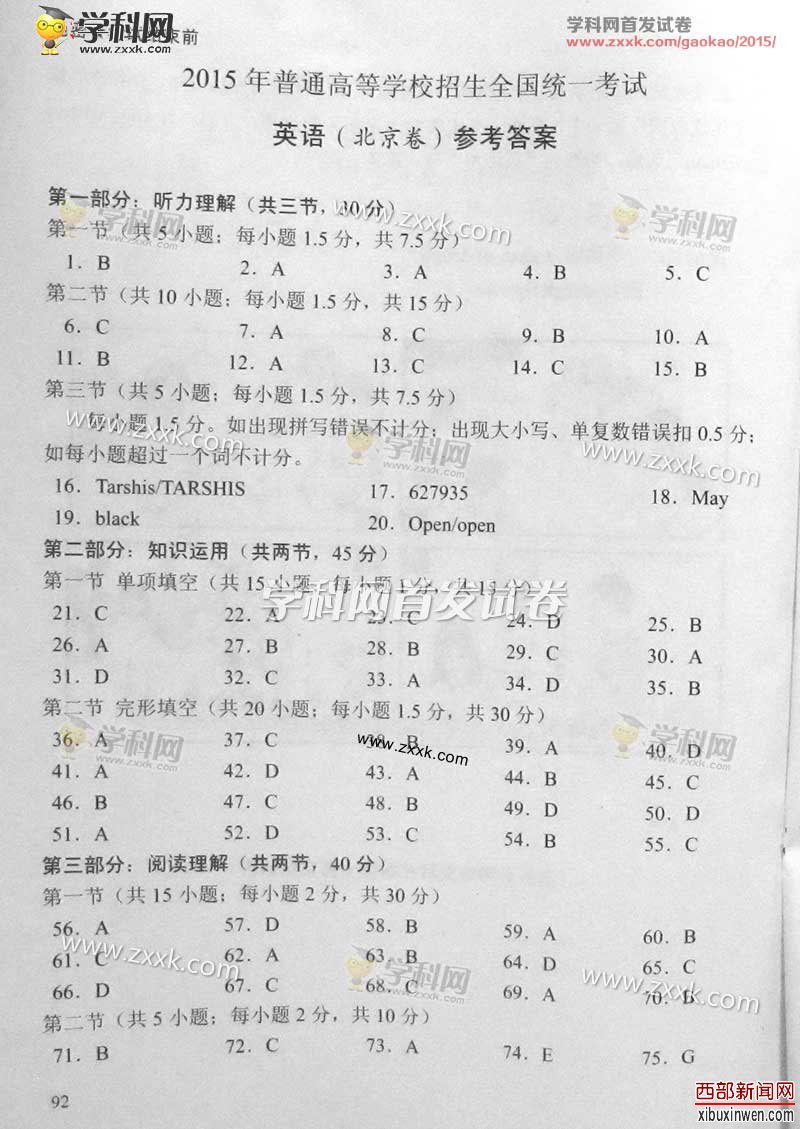 学科网
www.zxxk.com
束前
学科网首发试卷
www.zxxk.com/gaokao/2015/
2015 年普通高等学校招生全国统一考试
英语（北京卷）参考答案
第一部分：听力理解（共三节，30 分）
第一节（共 5 小题；每小题 1.5 分，共 7.5 分）
1．B 2．A 3．A 4．B 5．C
第二节（共 10 小题；每小题 1.5 分，共 15 分）
6．C 7．A 8．C 9．B 10．A
11．B 12．A 13．C 14．C 15．B
第三节（共 5 小题；每小题 1.5 分，共 7.5 分）
每小题 1.5 分。如出现拼写错误不计分；出现大小写、单复数错误扣 0.5 分；
如每小题超过一个词不计分。
16．Tarshis/TARSHIS 17．627935 18．May
19．black 20．Open/open
第二部分：知识运用（共两节，45 分）
第一节 单项填空（共 15 小题；每小题 1 分，共 15 分）
学科网首发试卷
21．C 22．A 23．C 24．D 25．B
26．A 27．B 28．B 29．C 30．A
31．D 32．C 33．A 34．D 35．B
第二节 完形填空（共 20 小题；每小题 1.5 分，共 30 分）
36．A 37．C 38．B 39．A 40．D
41．A 42．D 43．A 44．B 45．C
46．B 47．C 48．B 49．D 50．D
51．A 52．D 53．C 54．B 55．C
第三部分：阅读理解（共两节，40 分）
第一节（共 15 小题；每小题 2 分，共 30 分）
56．A 57．D 58．B 59．A 60．B
61．C 62．A 63．B 64．D 65．C
66．D 67．C 68．C 69．A 70．D
第二节（共 5 小题；每小题 2 分，共 10 分）
71．B 72．C 73．A 74．E 75．G
92
西部新闻网
xibuxinwen.com